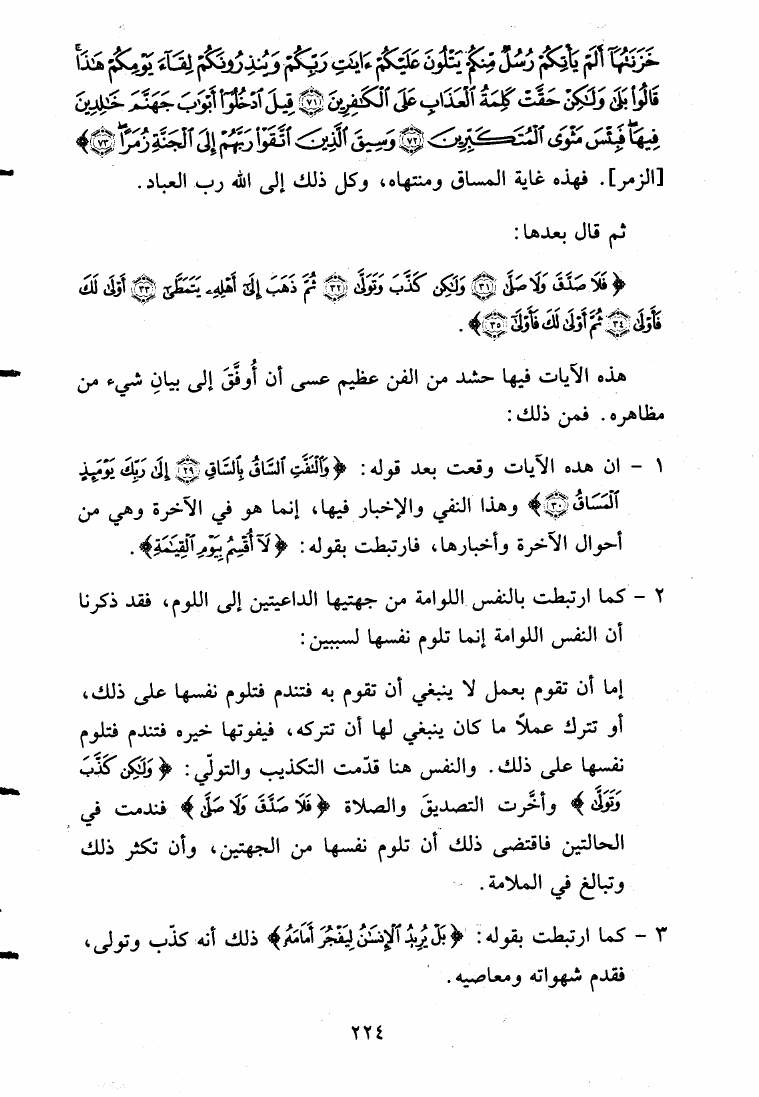 خَزَنَتُهَآ أَلَمْ يَأْتِكُمْ رُسُلٌ مِّنكُمْ يَتْلُونَ عَلَيْكُمْ ءَايَٰتِ رَبِّكُمْ وَيُنذِرُونَكُمْ لِقَآءَ يَوْمِكُمْ هَٰذَا ۚ
قَالُوا۟ بَلَىٰ وَلَٰكِنْ حَقَّتْ كَلِمَةُ ٱلْعَذَابِ عَلَى ٱلْكَٰفِرِينَ ٧١ قِيلَ ٱدْخُلُوٓا۟ أَبْوَٰبَ جَهَنَّمَ خَٰلِدِينَ
فِيهَا ۖ فَبِئْسَ مَثْوَى ٱلْمُتَكَبِّرِينَ ٧٢ وَسِيقَ ٱلَّذِينَ ٱتَّقَوْا۟ رَبَّهُمْ إِلَى ٱلْجَنَّةِ زُمَرًا ۖ ٧٣ ﴾
[الزمر]. فهذه غاية المساق ومنتهاه، وكل ذلك إلى الله رب العباد.
ثم قال بعدها:
﴿ فَلَا صَدَّقَ وَلَا صَلَّىٰ ٣١ وَلَٰكِن كَذَّبَ وَتَوَلَّىٰ ٣٢ ثُمَّ ذَهَبَ إِلَىٰٓ أَهْلِهِۦ يَتَمَطَّىٰٓ ٣٣ أَوْلَىٰ لَكَ
فَأَوْلَىٰ ٣٤ ثُمَّ أَوْلَىٰ لَكَ فَأَوْلَىٰٓ ٣٥ ﴾.
هذه الآيات فيها حشد من الفن عظيم عسى أن أُوفَّقَ إلى بيانِ شيء من
مظاهره. فمن ذلك:
١ - ان هذه الآيات وقعت بعد قوله: ﴿ وَٱلْتَفَّتِ ٱلسَّاقُ بِٱلسَّاقِ ٢٩ إِلَىٰ رَبِّكَ يَوْمَئِذٍ
ٱلْمَسَاقُ ٣٠ ﴾ وهذا النفي والإخبار فيها، إنما هو في الآخرة وهي من
أحوال الآخرة وأخبارها، فارتبطت بقوله: ﴿ لَآ أُقْسِمُ بِيَوْمِ ٱلْقِيَٰمَةِ ﴾.
٢ - كما ارتبطت بالنفس اللوامة من جهتيها الداعيتين إلى اللوم، فقد ذكرنا
أن النفس اللوامة إنما تلوم نفسها لسببين:
إما أن تقوم بعمل لا ينبغي أن تقوم به فتندم فتلوم نفسها على ذلك،
أو تترك عملاً ما كان ينبغي لها أن تتركه، فيفوتها خيره فتندم فتلوم
نفسها على ذلك. والنفس هنا قدّمت التكذيب والتولّي: ﴿ وَلَٰكِن كَذَّبَ
وَتَوَلَّىٰ ﴾ وأخَّرت التصديقَ والصلاة ﴿ فَلَا صَدَّقَ وَلَا صَلَّىٰ ﴾ فندمت في
الحالتين فاقتضى ذلك أن تلوم نفسها من الجهتين، وأن تكثر ذلك
وتبالغ في الملامة.
٣ - كما ارتبطت بقوله: ﴿ بَلْ يُرِيدُ ٱلْإِنسَٰنُ لِيَفْجُرَ أَمَامَهُۥ ﴾ ذلك أنه كذّب وتولى،
فقدم شهواته ومعاصيه.
٢٢٤